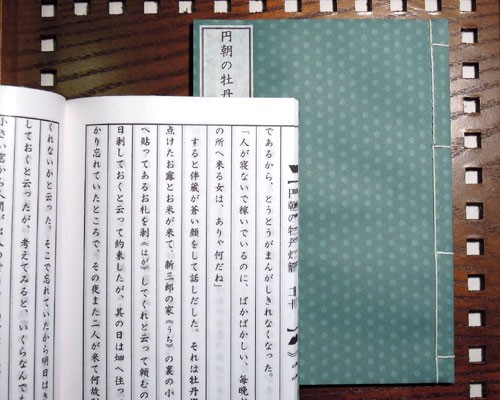 円朝の牡丹
円朝の牡丹灯籠
であるから、とうとうがまんがしきれなくなった。
「人が寝ないで稼いでいるのに、ばかばかしい、毎晩
の所へ来る女は、ありゃ何だね」
すると伴蔵が蒼い顔をして話しだした。それは牡丹
点けたお露とお米が来て、新三郎の家《うち》の裏の小
へ貼ってあるお札を剥《はが》してくれと云って頼むの
日剥しておくと云って約束したが、其の日は畑へ往っ
かり忘れていたところで、その夜また二人が来て何故
くれないかと云った。そこで忘れていたから明日はき
しておくと云ったが、考えてみると、いくらなんでも
小さい窓から人間が